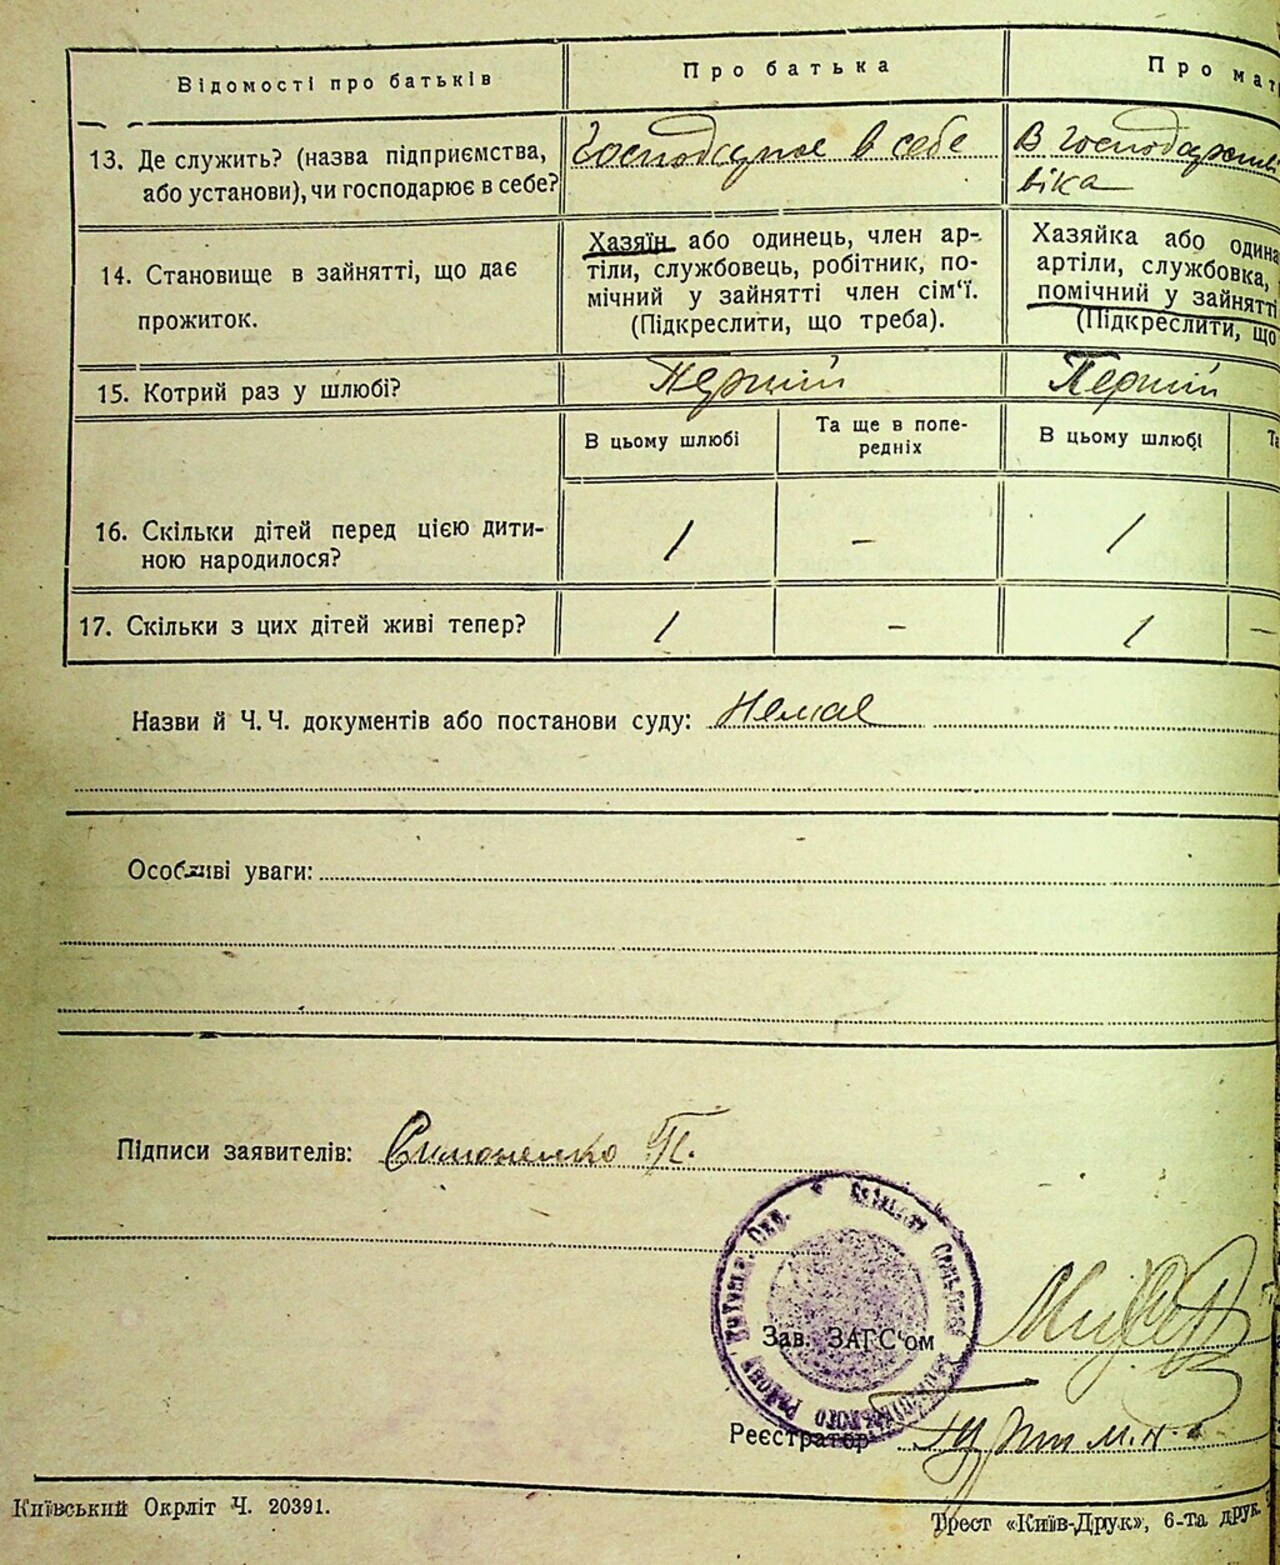 Відомості про батьків
Про батька
Про мат
13. Де служить? (назва підприємства,
або установи), чи господарює в себе?
Господарює в себе
В господарстві
віка
14. Становище в зайнятті, що дає
прожиток.
Хазяїн або одинець, член ар-
тіли, службовець, робітник, по-
мічний у зайнятті член сім‘ї.
(Підкреслити, що треба).
Хазяйка або одина
артіли, службовка,
помічний у зайнятті
(Підкреслити, що
15. Котрий раз у шлюбі?
Перший
Перший
В цьому шлюбі
Та ще в попе-
редніх
В цьому шлюбі
Та
16. Скільки дітей перед цією дити-
ною народилося?
1
-
1
17. Скільки з цих дітей живі тепер?
1
-
1
-
Назви й Ч. Ч. документів або постанови суду: Немає
Особливі уваги:
Підписи заявителів: Симоненко П.
Зав. ЗАГС‘ом
Реєстратор
Київський Окрліт Ч. 20391.
Трест «Київ-Друк», 6-та друк.